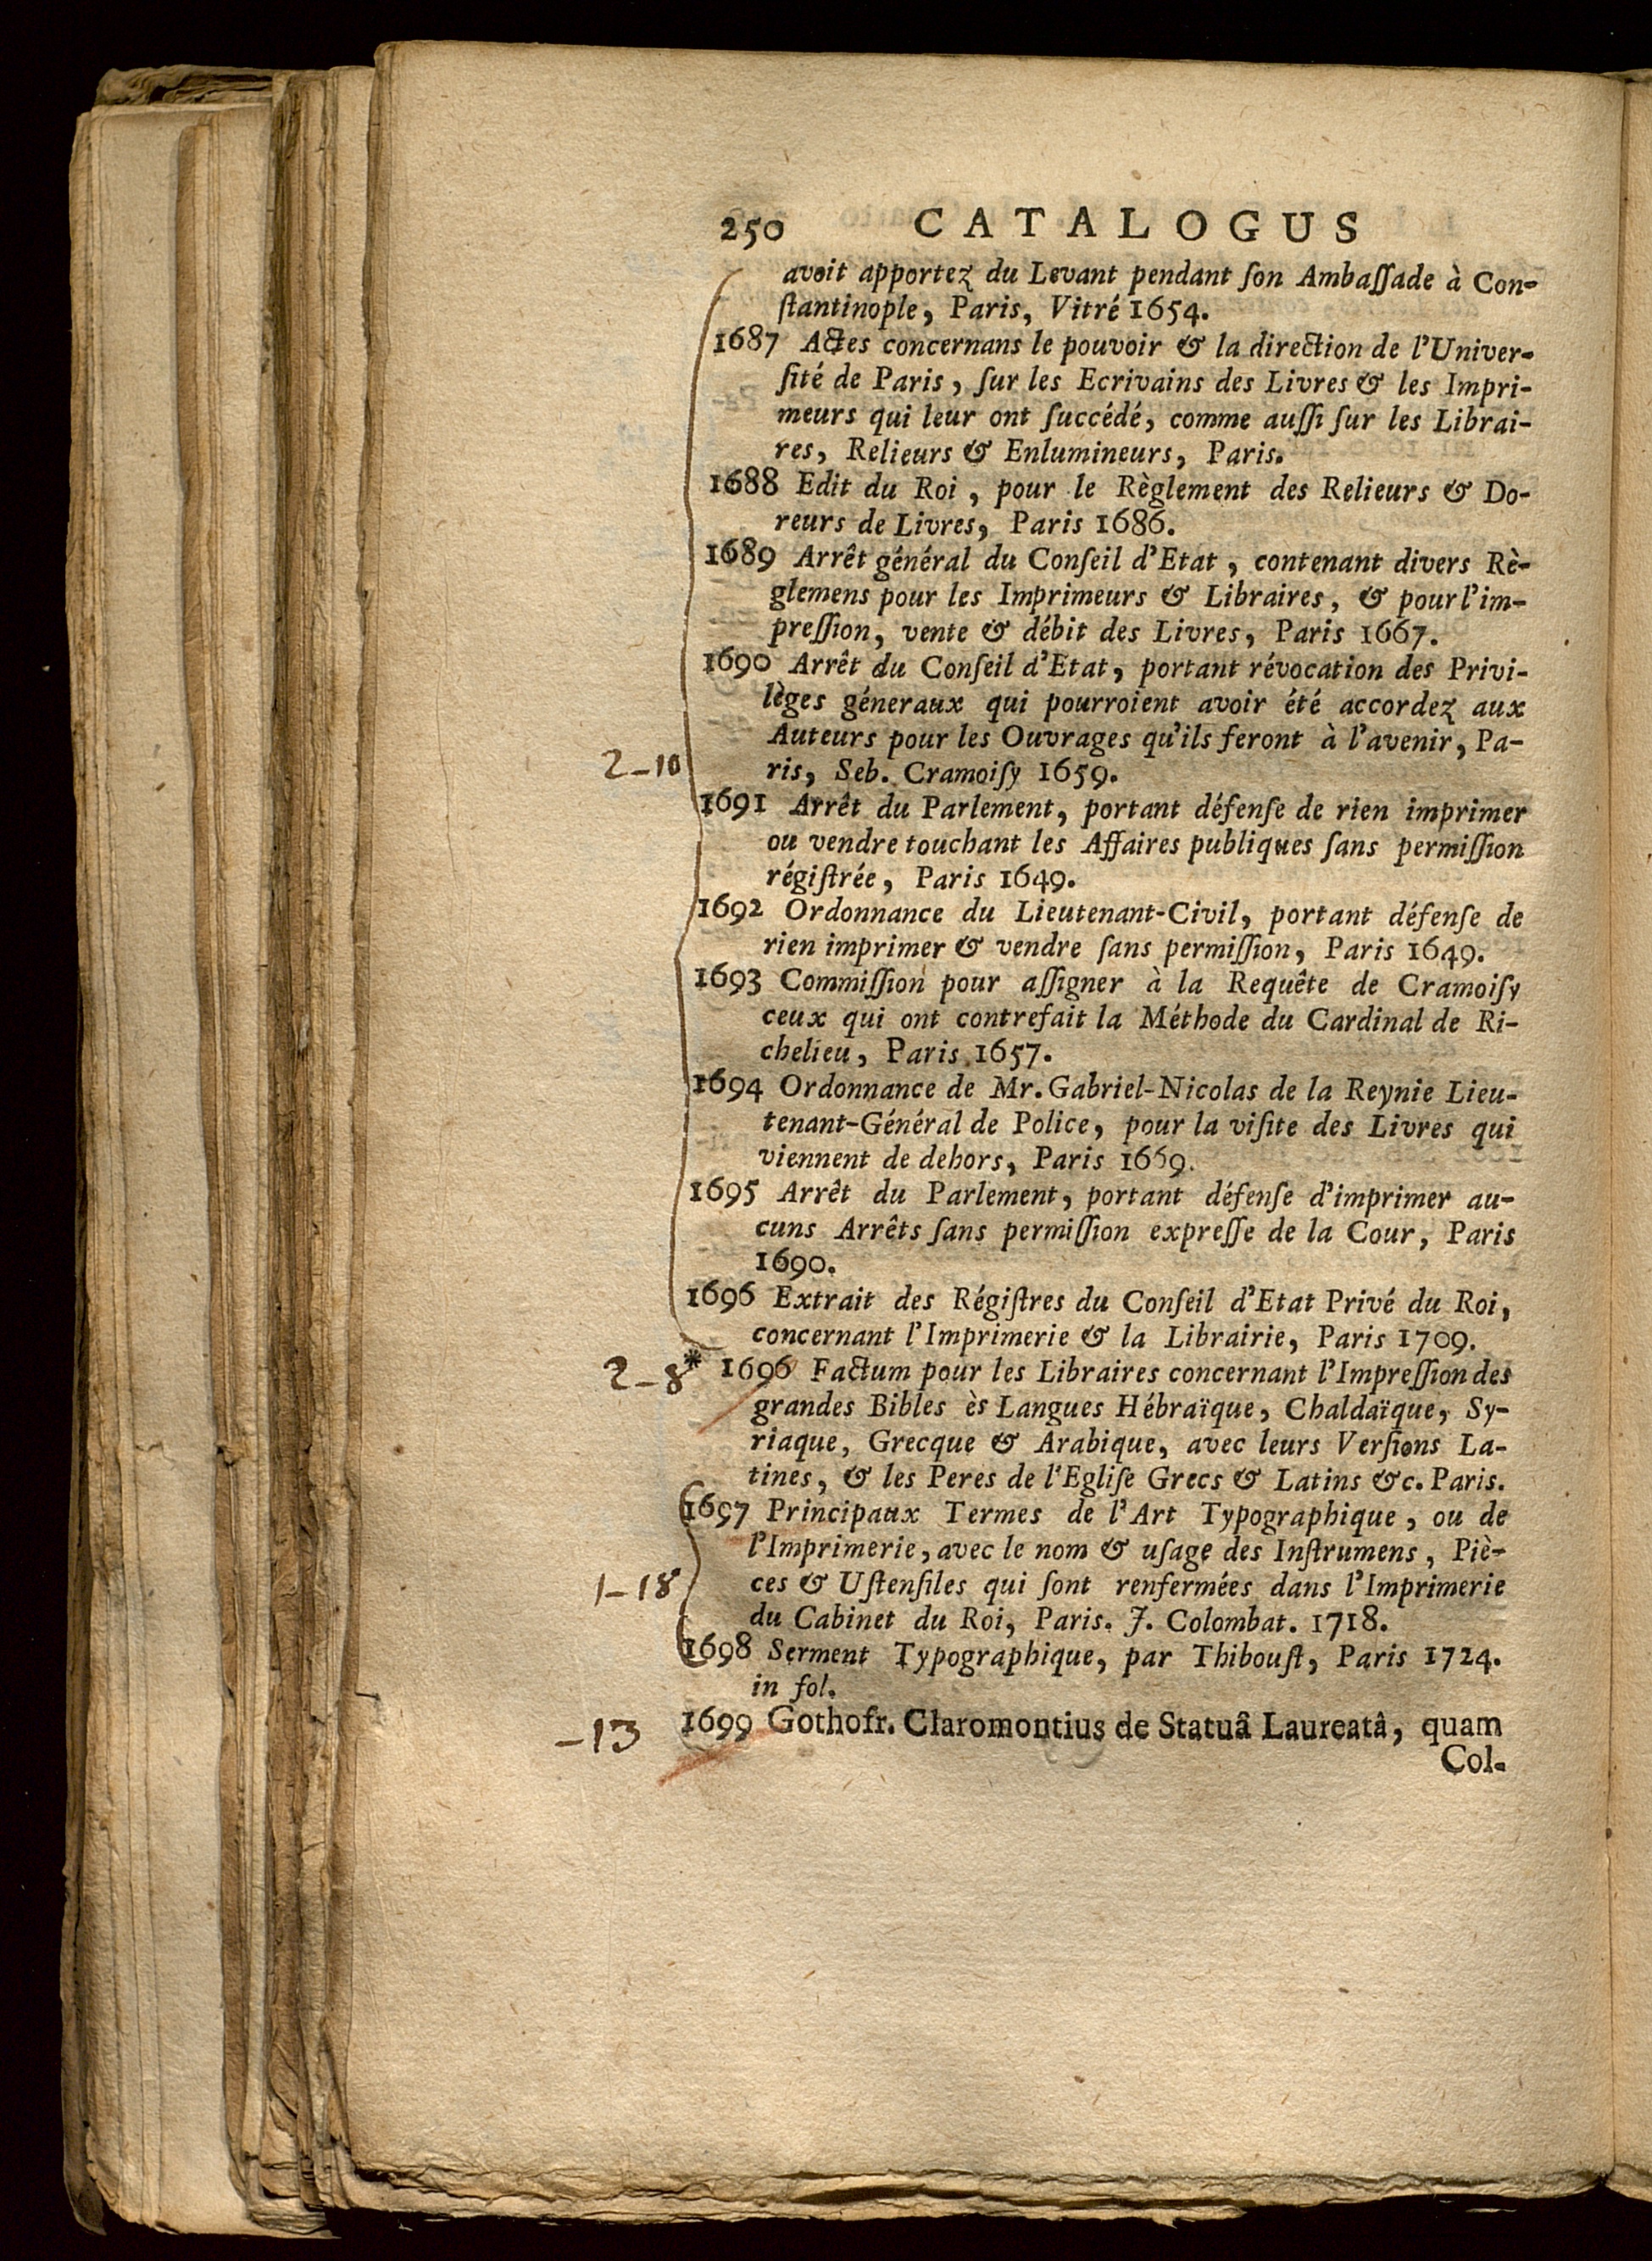 250 CATALOGUS
avoit apportez du Levant pendant ſon Ambaſſade à Con-
ſtantinople, Paris, Vitré 1654.
1687 Actes concernans le pouvoir & la direction de l'Univer-
ſité de Paris, ſur les Ecrivains des Livres & les Impri-
meurs qui leur ont ſuccédé, comme auſſi ſur les Librai-
res, Relieurs & Enlumineurs, Paris.
1688 Edit du Roi, pour le Règlement des Relieurs & Do-
reurs de Livres, Paris 1686.
1689 Arrêt général du Conſeil d'Etat, contenant divers Rè-
glemens pour les Imprimeurs & Libraires, & pour l'im-
preſſion, vente & débit des Livres, Paris 1667.
1690 Arrêt du Conſeil d'Etat, portant révocation des Privi-
lèges géneraux qui pourroient avoir été accordez aux
Auteurs pour les Ouvrages qu'ils feront à l'avenir, Pa-
2-10 ris, Seb. Cramoiſy 1659.
1691 Arrêt du Parlement, portant défenſe de rien imprimer
ou vendre touchant les Affaires publiques ſans permiſſion
régiſtrée, Paris 1649.
1692 Ordonnance du Lieutenant-Civil, portant défenſe de
rien imprimer & vendre ſans permiſſion, Paris 1649.
1693 Commiſſion pour aſſigner à la Requête de Cramoiſy
ceux qui ont contrefait la Méthode du Cardinal de Ri-
chelieu, Paris 1657.
1694 Ordonnance de Mr. Gabriel-Nicolas de la Reynie Lieu-
tenant-Général de Police, pour la viſite des Livres qui
viennent de dehors, Paris 1669.
1695 Arrêt du Parlement, portant défenſe d'imprimer au-
cuns Arrêts ſans permiſſion expreſſe de la Cour, Paris
1690.
1696 Extrait des Régiſtres du Conſeil d'Etat Privé du Roi,
concernant l'Imprimerie & la Librairie, Paris 1709.
2-8 * 1696 Factum pour les Libraires concernant l'Impreſſion des
grandes Bibles ès Langues Hébraïque, Chaldaïque, Sy-
riaque, Grecque & Arabique, avec leurs Verſions La-
tines, & les Peres de l'Egliſe Grecs & Latins &c. Paris.
1697 Principaux Termes de l'Art Typographique, ou de
l'Imprimerie, avec le nom & uſage des Inſtrumens, Piè-
1-18 ces & Uſtenſiles qui ſont renfermées dans l'Imprimerie
du Cabinet du Roi, Paris. J. Colombat. 1718.
1698 Serment Typographique, par Thibouſt, Paris 1724.
in fol.
-13 1699 Gothofr. Claromontius de Statuâ Laureatâ, quam
Col-